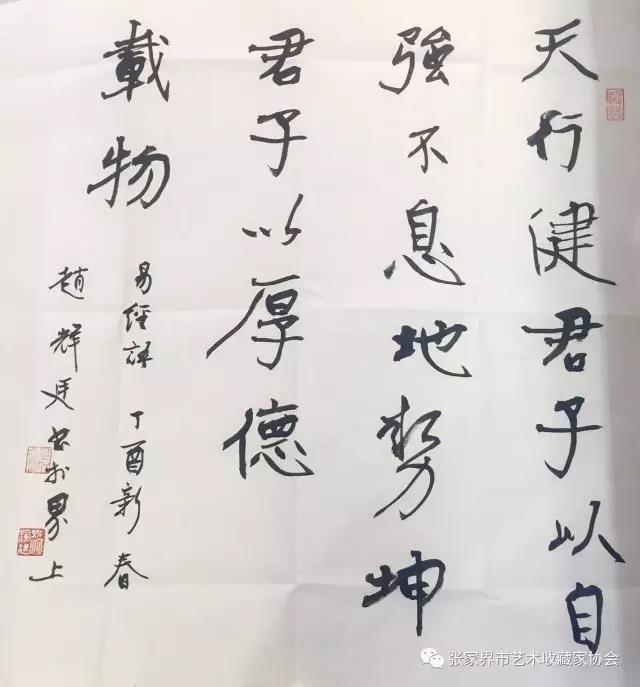 天行健君子以自
強不息地勢坤
君子以厚德
載物
易經語 丁酉新春
趙輝廷书於界上
张家界市艺术收藏家协会